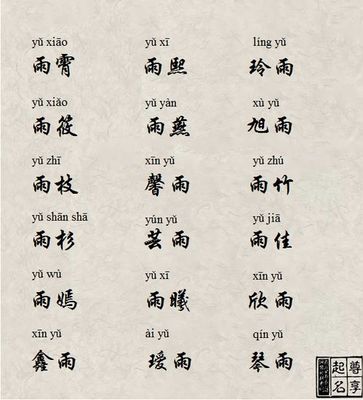 yǔ xiāo yǔ xī líng yǔ
雨霄 雨熙 玲雨
yǔ xiǎo yǔ yàn xù yǔ
雨筱 雨燕 旭雨
yǔ zhī xīn yǔ yǔ zhú
雨枝 馨雨 雨竹
yǔ shān shā yún yǔ yǔ jiā
雨杉 芸雨 雨佳
yǔ wǔ yǔ xī xīn yǔ
雨嫣 雨曦 欣雨
xīn yǔ ài yǔ qín yǔ
鑫雨 瑷雨 琴雨
尊享
起名